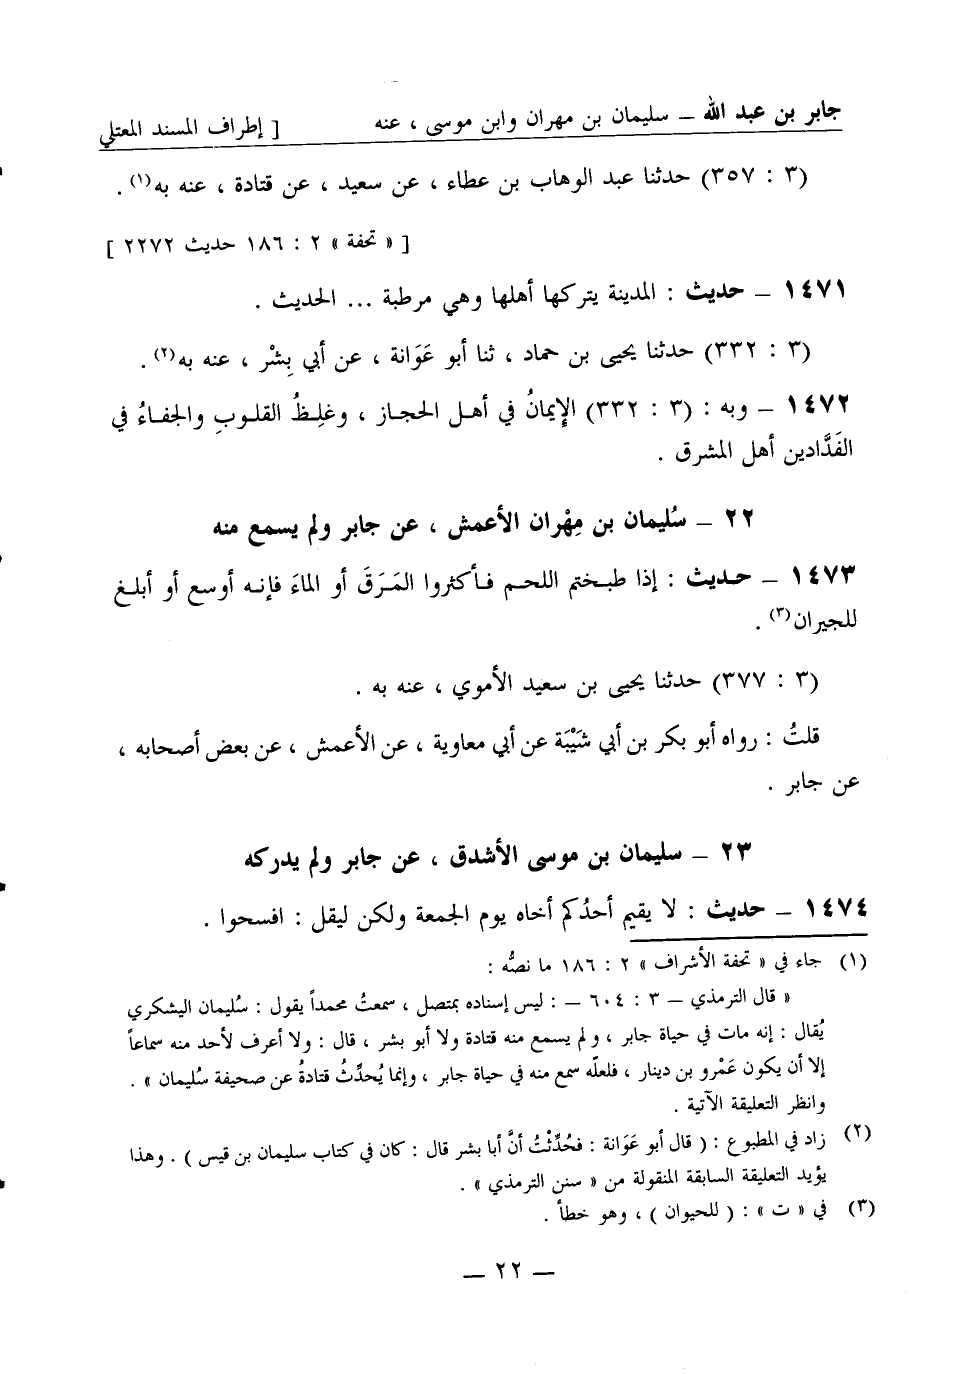 جابر بن عبد الله – سليمان بن مهران وابن موسى ، عنه [ إطراف المسند المعتلي
(٣ : ٣٥٧) حدثنا عبد الوهاب بن عطاء ، عن سعيد ، عن قتادة ، عنه به(١) .
[ « تحفة » ٢ : ١٨٦ حديث ٢٢٧٢ ]
١٤٧١ – حديث : المدينة يتركها أهلها وهي مرطبة ... الحديث .
(٣ : ٣٣٢) حدثنا يحيى بن حماد ، ثنا أبو عَوَانة ، عن أبي بِشْر ، عنه به(٢) .
١٤٧٢ – وبه : (٣ : ٣٣٢) الإِيمانُ في أهل الحجاز ، وغلِظُ القلوبِ والجفاءُ في
الفَدَّادين أهل المشرق .
٢٢ – سُليمان بن مِهْران الأعمش ، عن جابر ولم يسمع منه
١٤٧٣ – حديث : إذا طبختم اللحم فأكثروا المَرَقَ أو الماءَ فإنه أوسع أو أبلغ
للجيران(٣) .
(٣ : ٣٧٧) حدثنا يحيى بن سعيد الأموي ، عنه به .
قلتُ : رواه أبو بكر بن أبي شَيْبَة عن أبي معاوية ، عن الأعمش ، عن بعض أصحابه ،
عن جابر .
٢٣ – سليمان بن موسى الأشدق ، عن جابر ولم يدركه
١٤٧٤ – حديث : لا يقيم أحدُكم أخاه يوم الجمعة ولكن ليقل : افسحوا .
(١) جاء في « تحفة الأشراف » ٢ : ١٨٦ ما نصُّه :
« قال الترمذي – ٣ : ٦٠٤ – : ليس إسناده بمتصل ، سمعتُ محمداً يقول : سُليمان اليشكري
يُقال : إنه مات في حياة جابر ، ولم يسمع منه قتادة ولا أبو بشر ، قال : ولا أعرف لأحد منه سماعاً
إلا أن يكون عَمْرو بن دينار ، فلعلّه سمع منه في حياة جابر ، وإنما يُحدِّثُ قتادةُ عن صحيفة سُليمان » .
وانظر التعليقة الآتية .
(٢) زاد في المطبوع : ( قال أبو عَوَانة : فحُدِّثْتُ أنَّ أبا بشر قال : كان في كتاب سليمان بن قيس ) . وهذا
يؤيد التعليقة السابقة المنقولة من « سنن الترمذي » .
(٣) في « ت » : ( للحيوان ) ، وهو خطأ .
– ٢٢ –